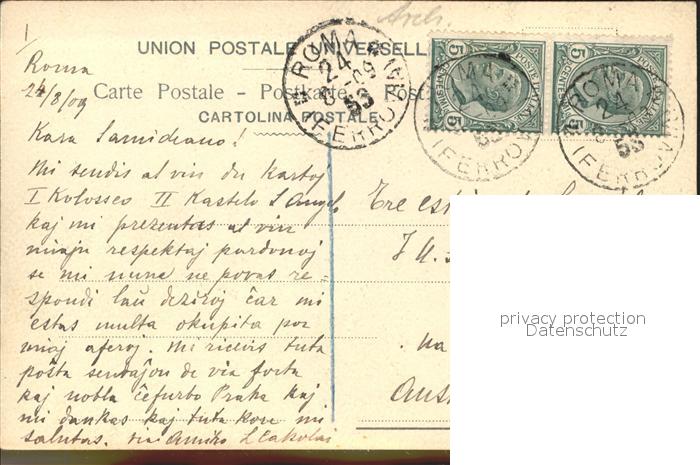 1/
Arch.
UNION POSTALE UNIVERSELLE
Carte Postale - Postkarte
CARTOLINA POSTALE
ROMA
24
8-09
53
(FERROVIA)
5 POSTE ITALIANE 5
Roma
24/8/09
Kara Samideano!
Mi sendis al vin du kartoj
I Kolosseo II Kastelo S Angelo
kaj mi prezentas al vin
miajn respektaj pardonoj
se mi nune ne povas re=
spondi laŭ deziroj ĉar mi
estas multa okupita por
miaj aferoj. Mi ricevis tuta
poŝta sendaĵon de via forta
kaj nobla ĉefurbo Praha kaj
mi dankas kaj tuta kore mi
salutas. via Amiko
Tre est
na
Aust
privacy protection
Datenschutz